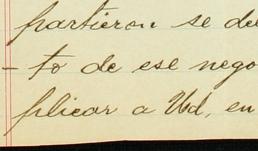 partieron se de
- to de ese nego
plicar a Ud, en